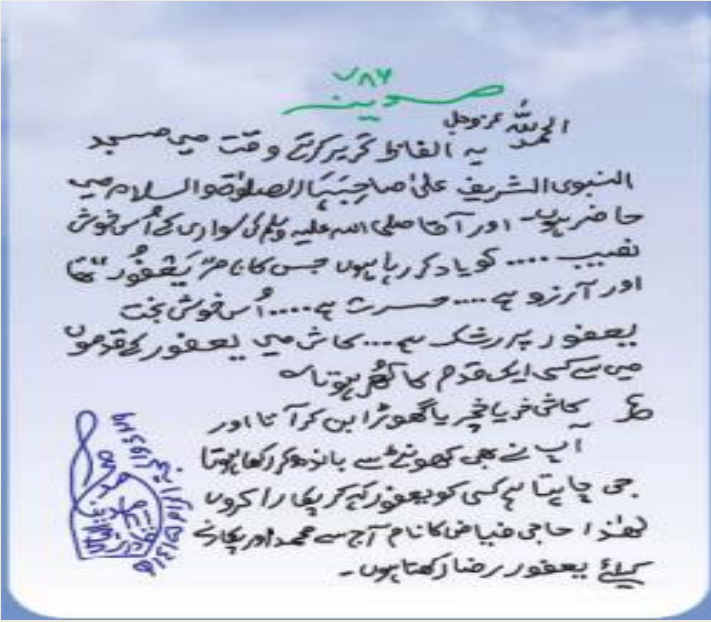 ۷۸۶
مدینہ
الحمدللہ عزوجل
یہ الفاظ تحریر کرتے وقت میں مسجد
النبوی الشریف علیٰ صاحبہا الصلوٰۃ والسلام میں
حاضر ہوں۔ اور آقا صلی اللہ علیہ وسلم کی سواری کے اُس خوش
نصیب .... کو یاد کر رہا ہوں جس کا نام "یَعْفُور" تھا
اور آرزو ہے .... حسرت ہے .... اُس خوش بخت
یعفور پر رشک ہے ... کاش میں یعفور کے قدموں
میں سے کسی ایک قدم کا کُھر ہوتا۔
ع کاش خر یا خچر یا گھوڑا بن کر آتا اور
آپ نے بھی کھونٹے سے باندھ کر رکھا ہوتا
جی چاہتا ہے کسی کو یعفور کہہ کر پکارا کروں
لھٰذا حاجی فیاض کا نام آج سے محمد اور پکارنے
کیلئے یعفور رضا رکھتا ہوں۔